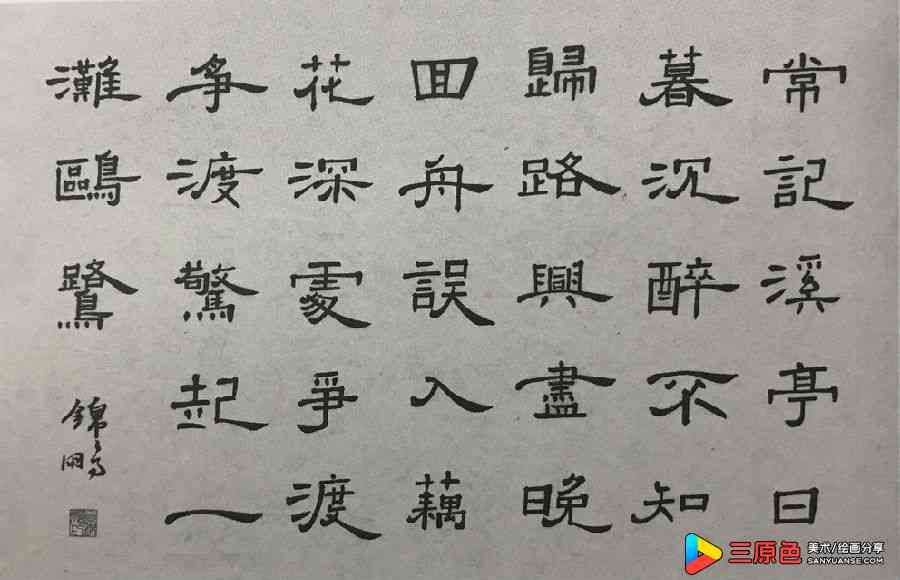 常記溪亭日
暮沉醉不知
歸路興盡晚
回舟誤入藕
花深處爭渡
爭渡驚起一
灘鷗鷺
三原色
美术/绘画分享
SANYUANSE.COM